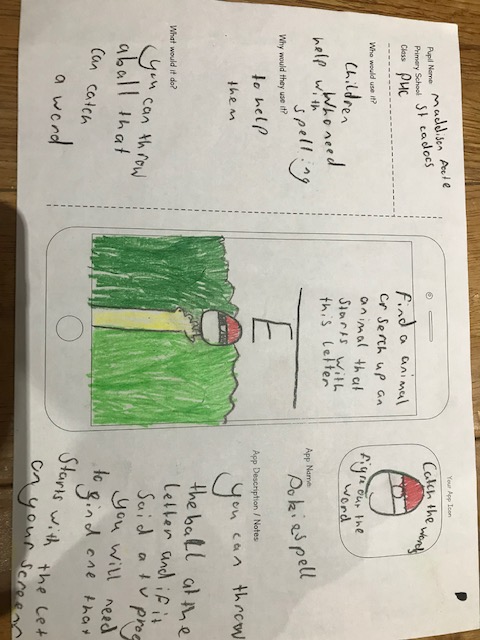 Pupil Name: Maddison
Primary School: St cadocs
Class: P4C
Who would use it?
Children
who need
help with
spelling
Why would they use it?
to help
them
What would it do?
You can throw
a ball that
can catch
a word
find a animal
or serch up an
animal that
starts with
this letter
E
Your App Icon
Catch the word
figure out the
word
App Name:
Pokiespell
App Description / Notes:
You can throw
the ball at the
letter and if it
said a tv prog
you will need
to find one that
Starts with the let
on your screen